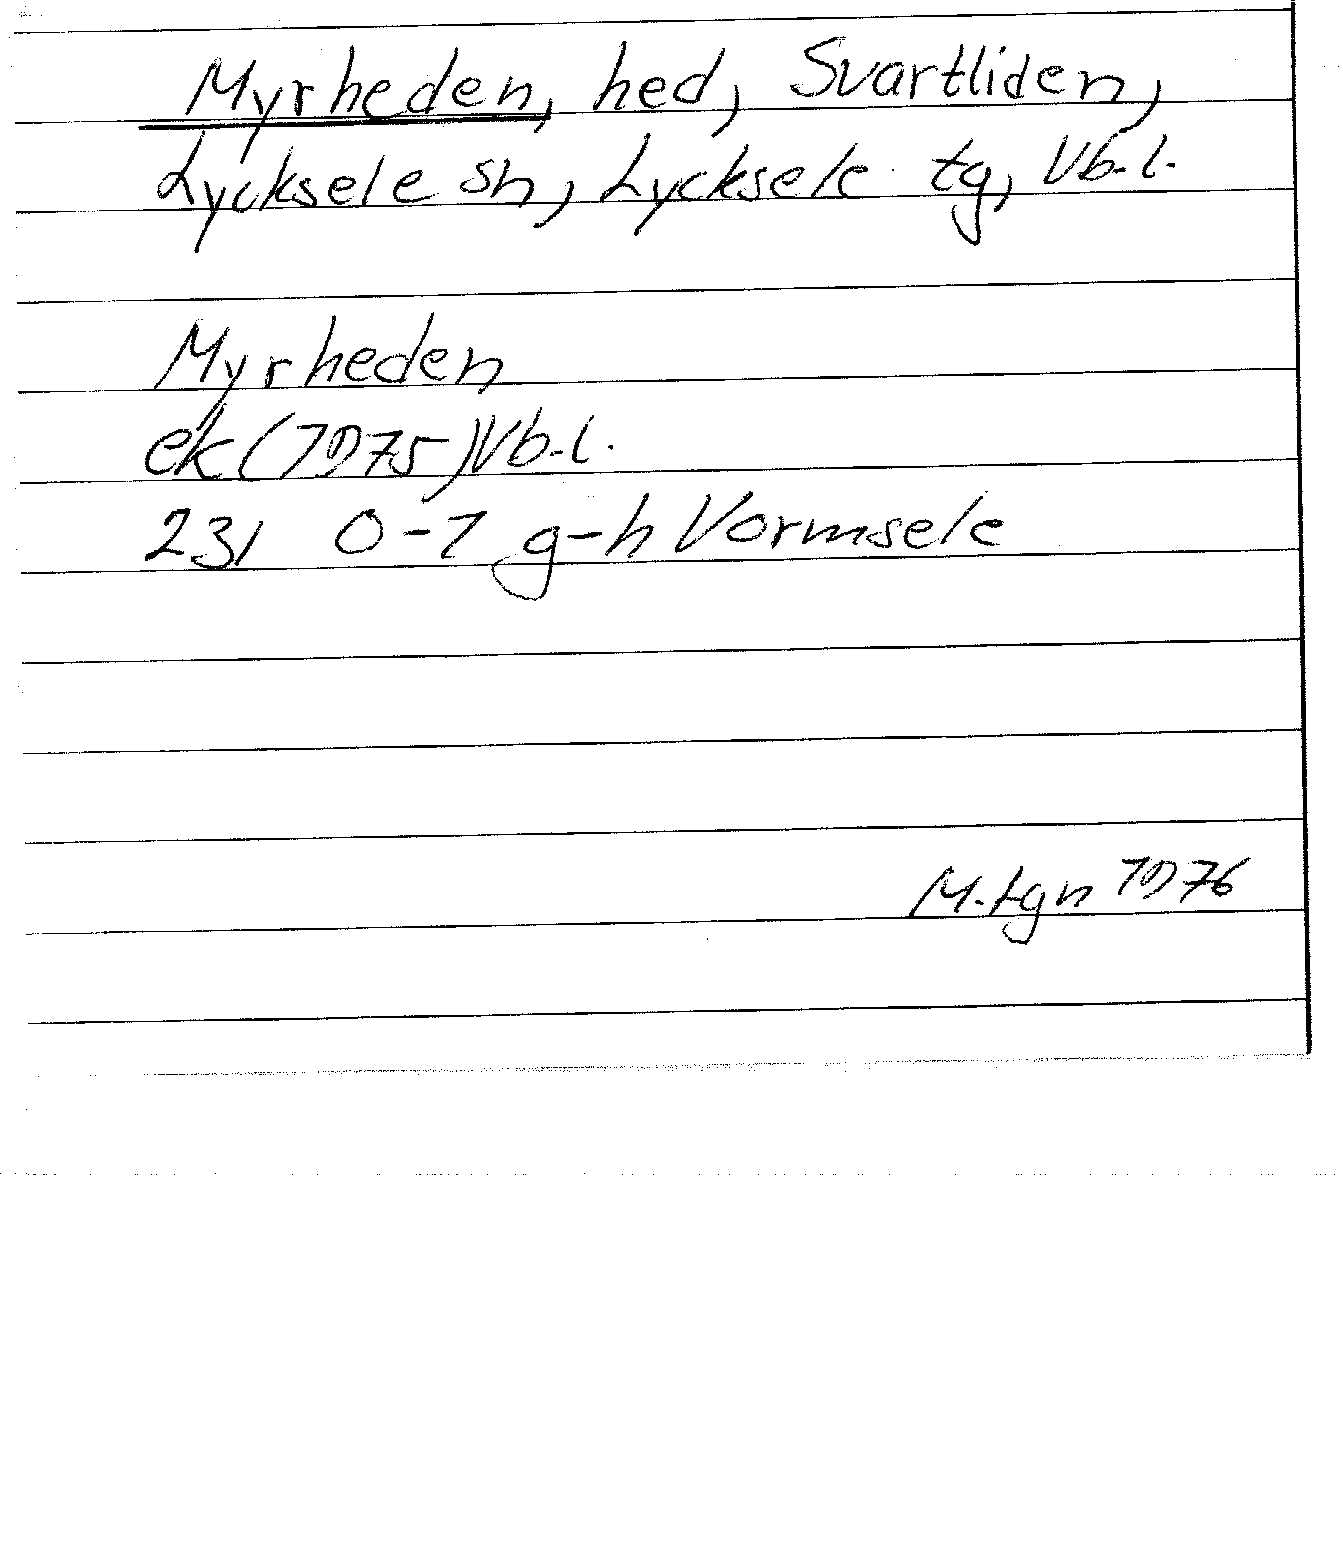 Myrheden, hed, Svartliden,
Lycksele sn, Lycksele tg, Vb.l.
Myrheden
ek (1975) Vb.l.
23I 0-1 g-h Vormsele
M.Lgn 1976